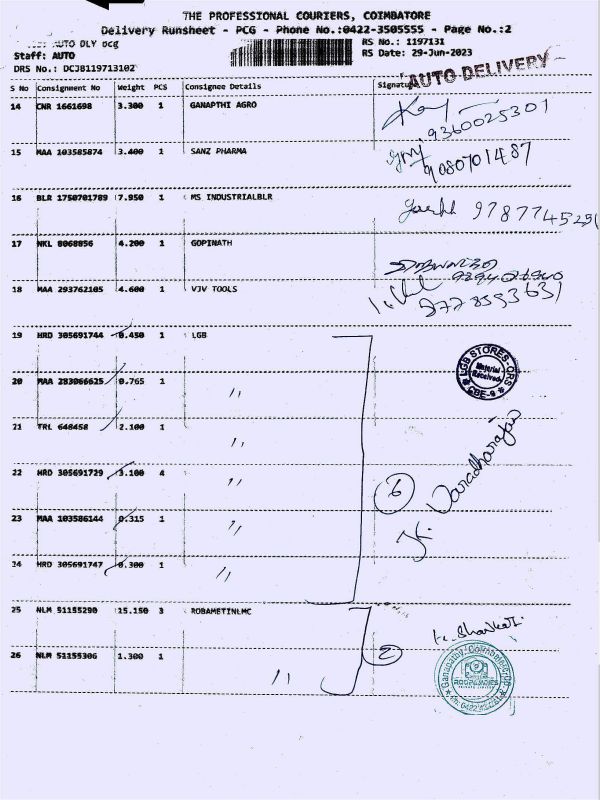 THE PROFESSIONAL COURIERS, COIMBATORE
Delivery Runsheet - PCG - Phone No.:0422-3505555 - Page No.:2
AUTO DLY PCG
RS No.: 1197131
Staff: AUTO
RS Date: 29-Jun-2023
DRS No.: DCJ8119713102
AUTO DELIVERY
S No Consignment No Weight PCS Consignee Details Signature
14 CNR 1661698 3.300 1 GANAPTHI AGRO
9360025301
15 MAA 103585874 3.400 1 SANZ PHARMA
9080701487
16 BLR 1750701789 7.950 1 MS INDUSTRIALBLR
9787745251
17 NKL 8068856 4.200 1 GOPINATH
18 MAA 293762105 4.600 1 VJV TOOLS
19 HRD 305691744 0.450 1 LGB
LGB STORES-ORS
Material Received
CBE-9
20 MAA 283066625 0.765 1 "
21 TRL 648458 2.100 1 "
22 HRD 305691729 3.100 4 "
6
Varadharajan
23 MAA 103586144 0.315 1 "
24 HRD 305691747 0.300 1 "
25 NLM 51155290 15.150 3 ROBAMETINLMC
26 NLM 51155306 1.300 1 "
2